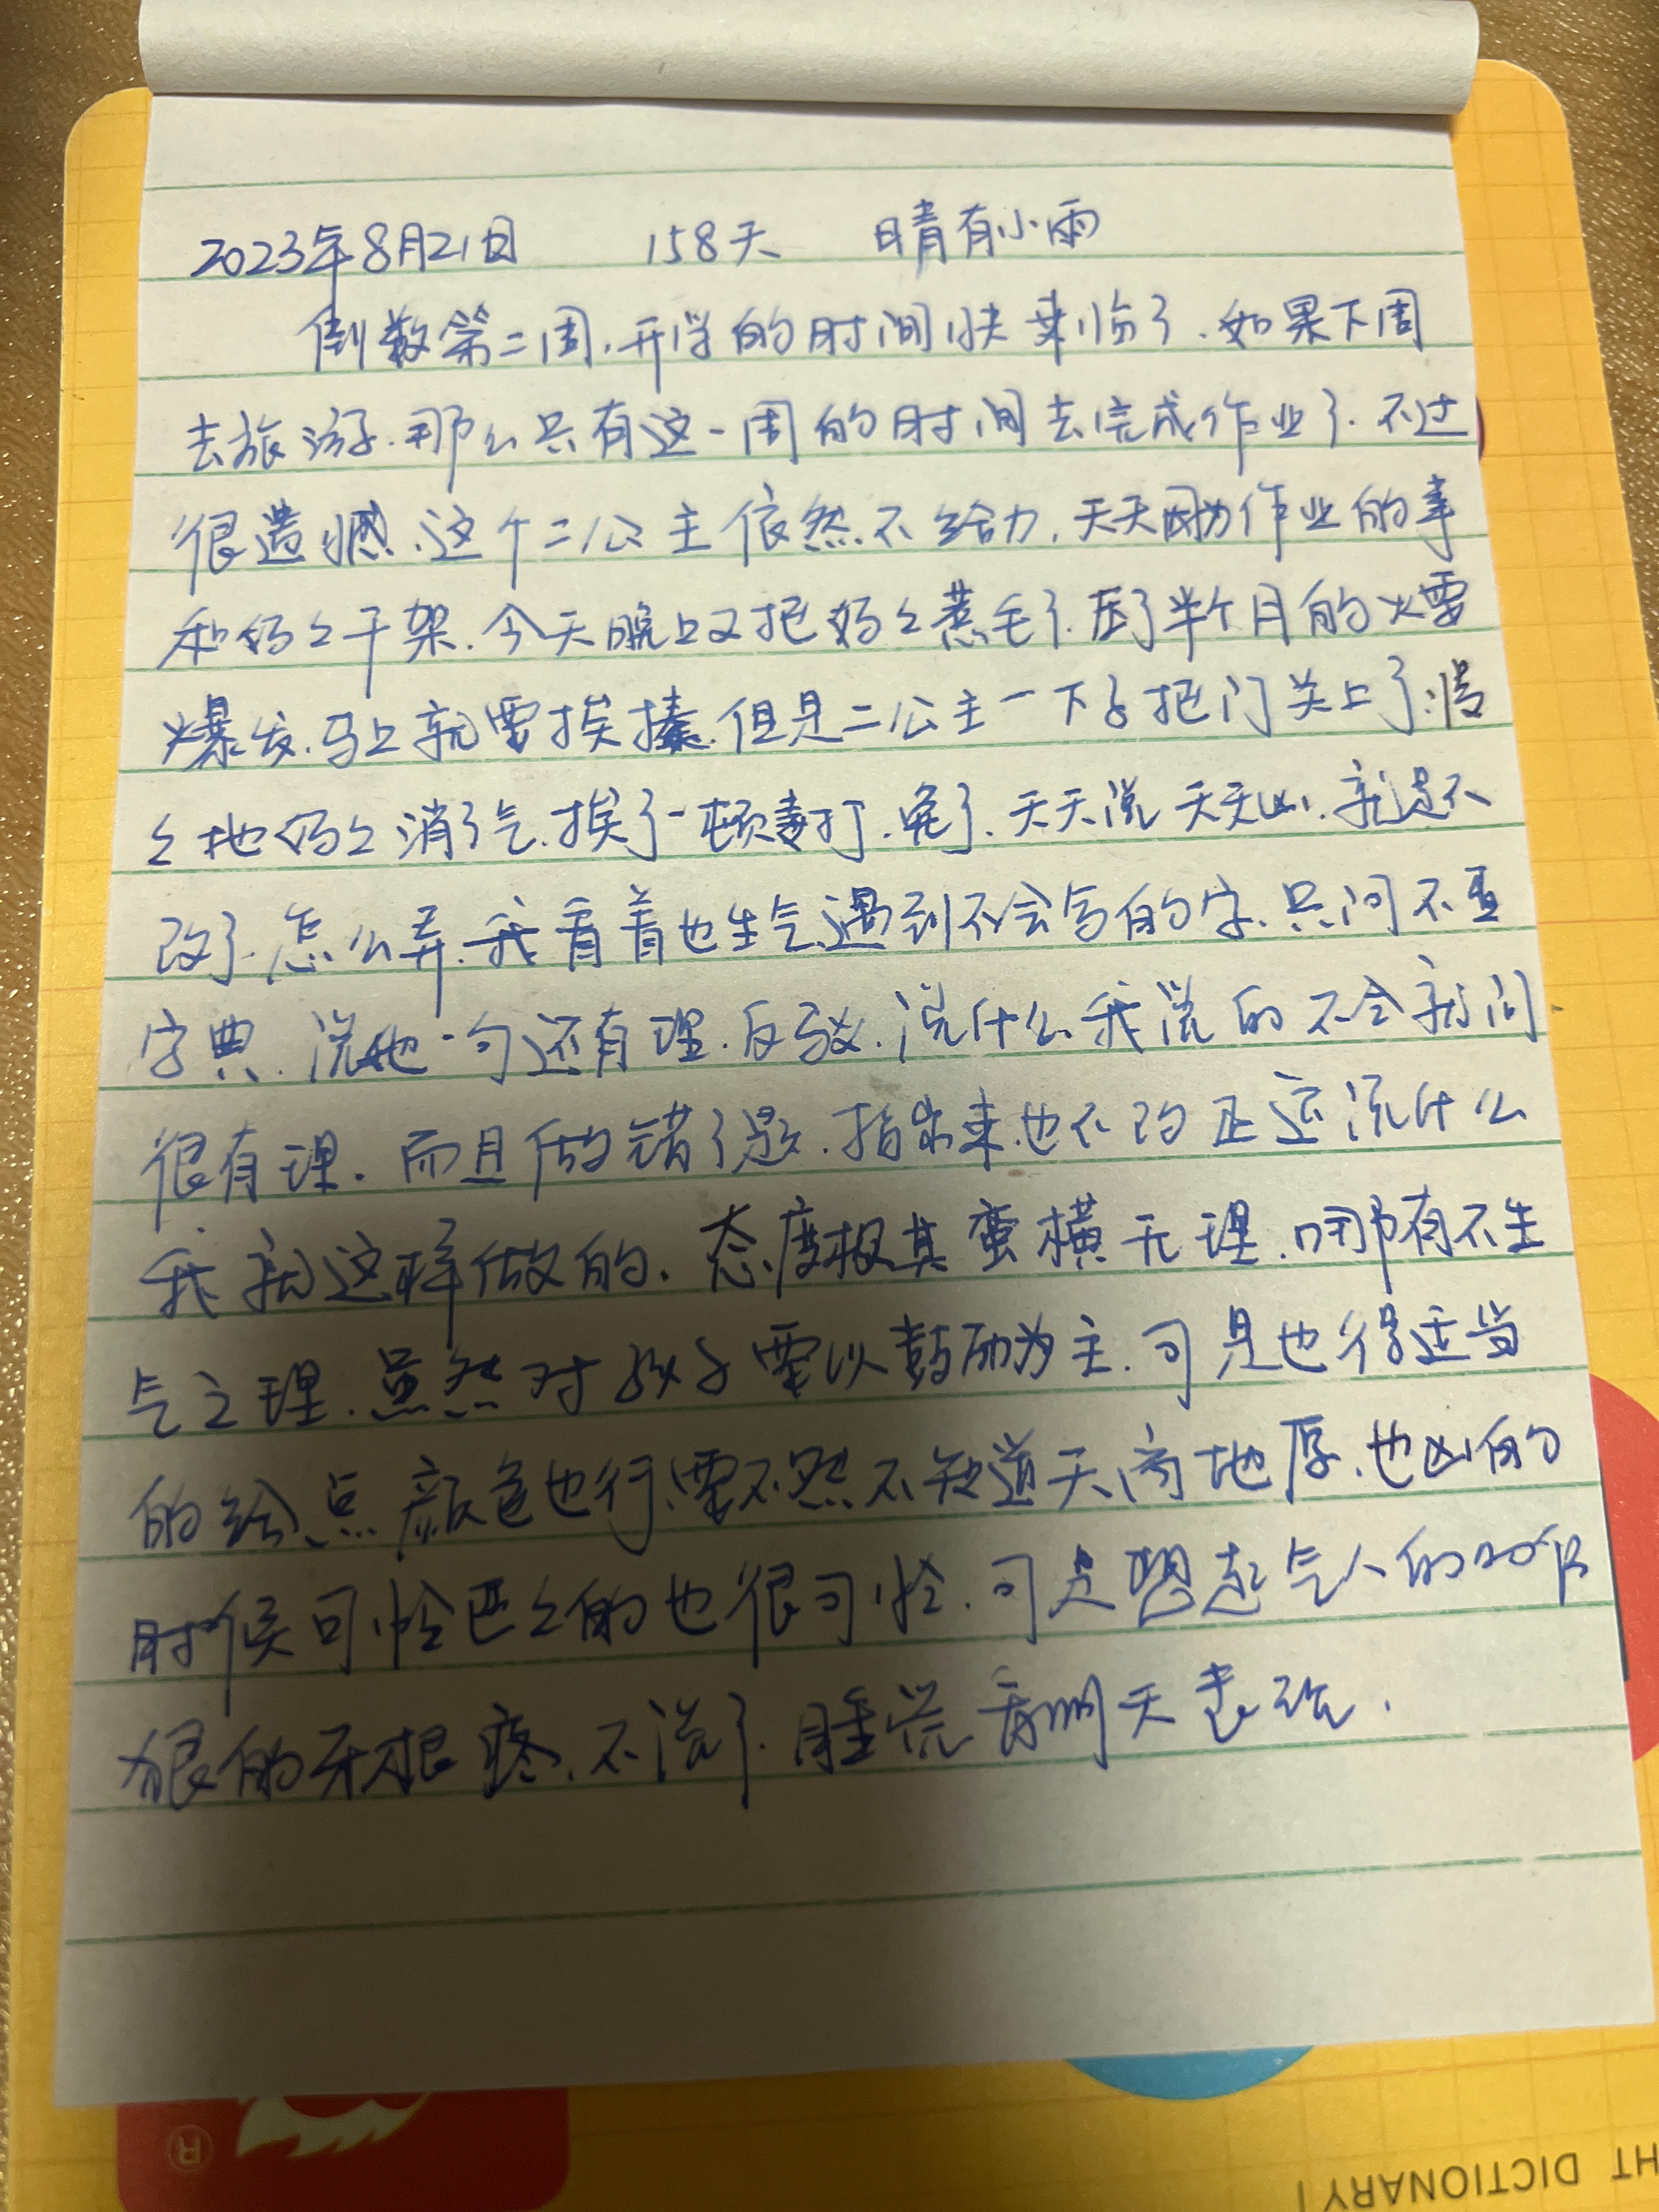 2023年8月21日 158天 晴有小雨
倒数第二周.开学的时间快来临了.如果下周
去旅游.那么只有这一周的时间去完成作业了.不过
很遗憾.这个二公主依然不给力.天天因为作业的事
和妈々干架.今天晚上又把妈々惹毛了.压了半个月的火要
爆发.马上就要挨揍.但是二公主一下子把门关上了.慢
々地妈々消了气.挨了一顿毒打.免了.天天说天天凶.就是不
改了.怎么弄.我看着也生气.遇到不会写的字.只问不查
字典.说她一句还有理.反驳.说什么我说的不会就问.
很有理.而且做错了题.指出来也不改正还说什么
我就这样做的.态度极其蛮横无理.哪有不生
气之理.虽然对孩子要以鼓励为主.可是也得适当
的给点颜色也行.要不然不知道天高地厚.也凶的
时候可怜巴々的也很可怜.可是想起气人的时候
狠的牙根疼.不说了.睡觉看明天表现.
®
HT DICTIONARY